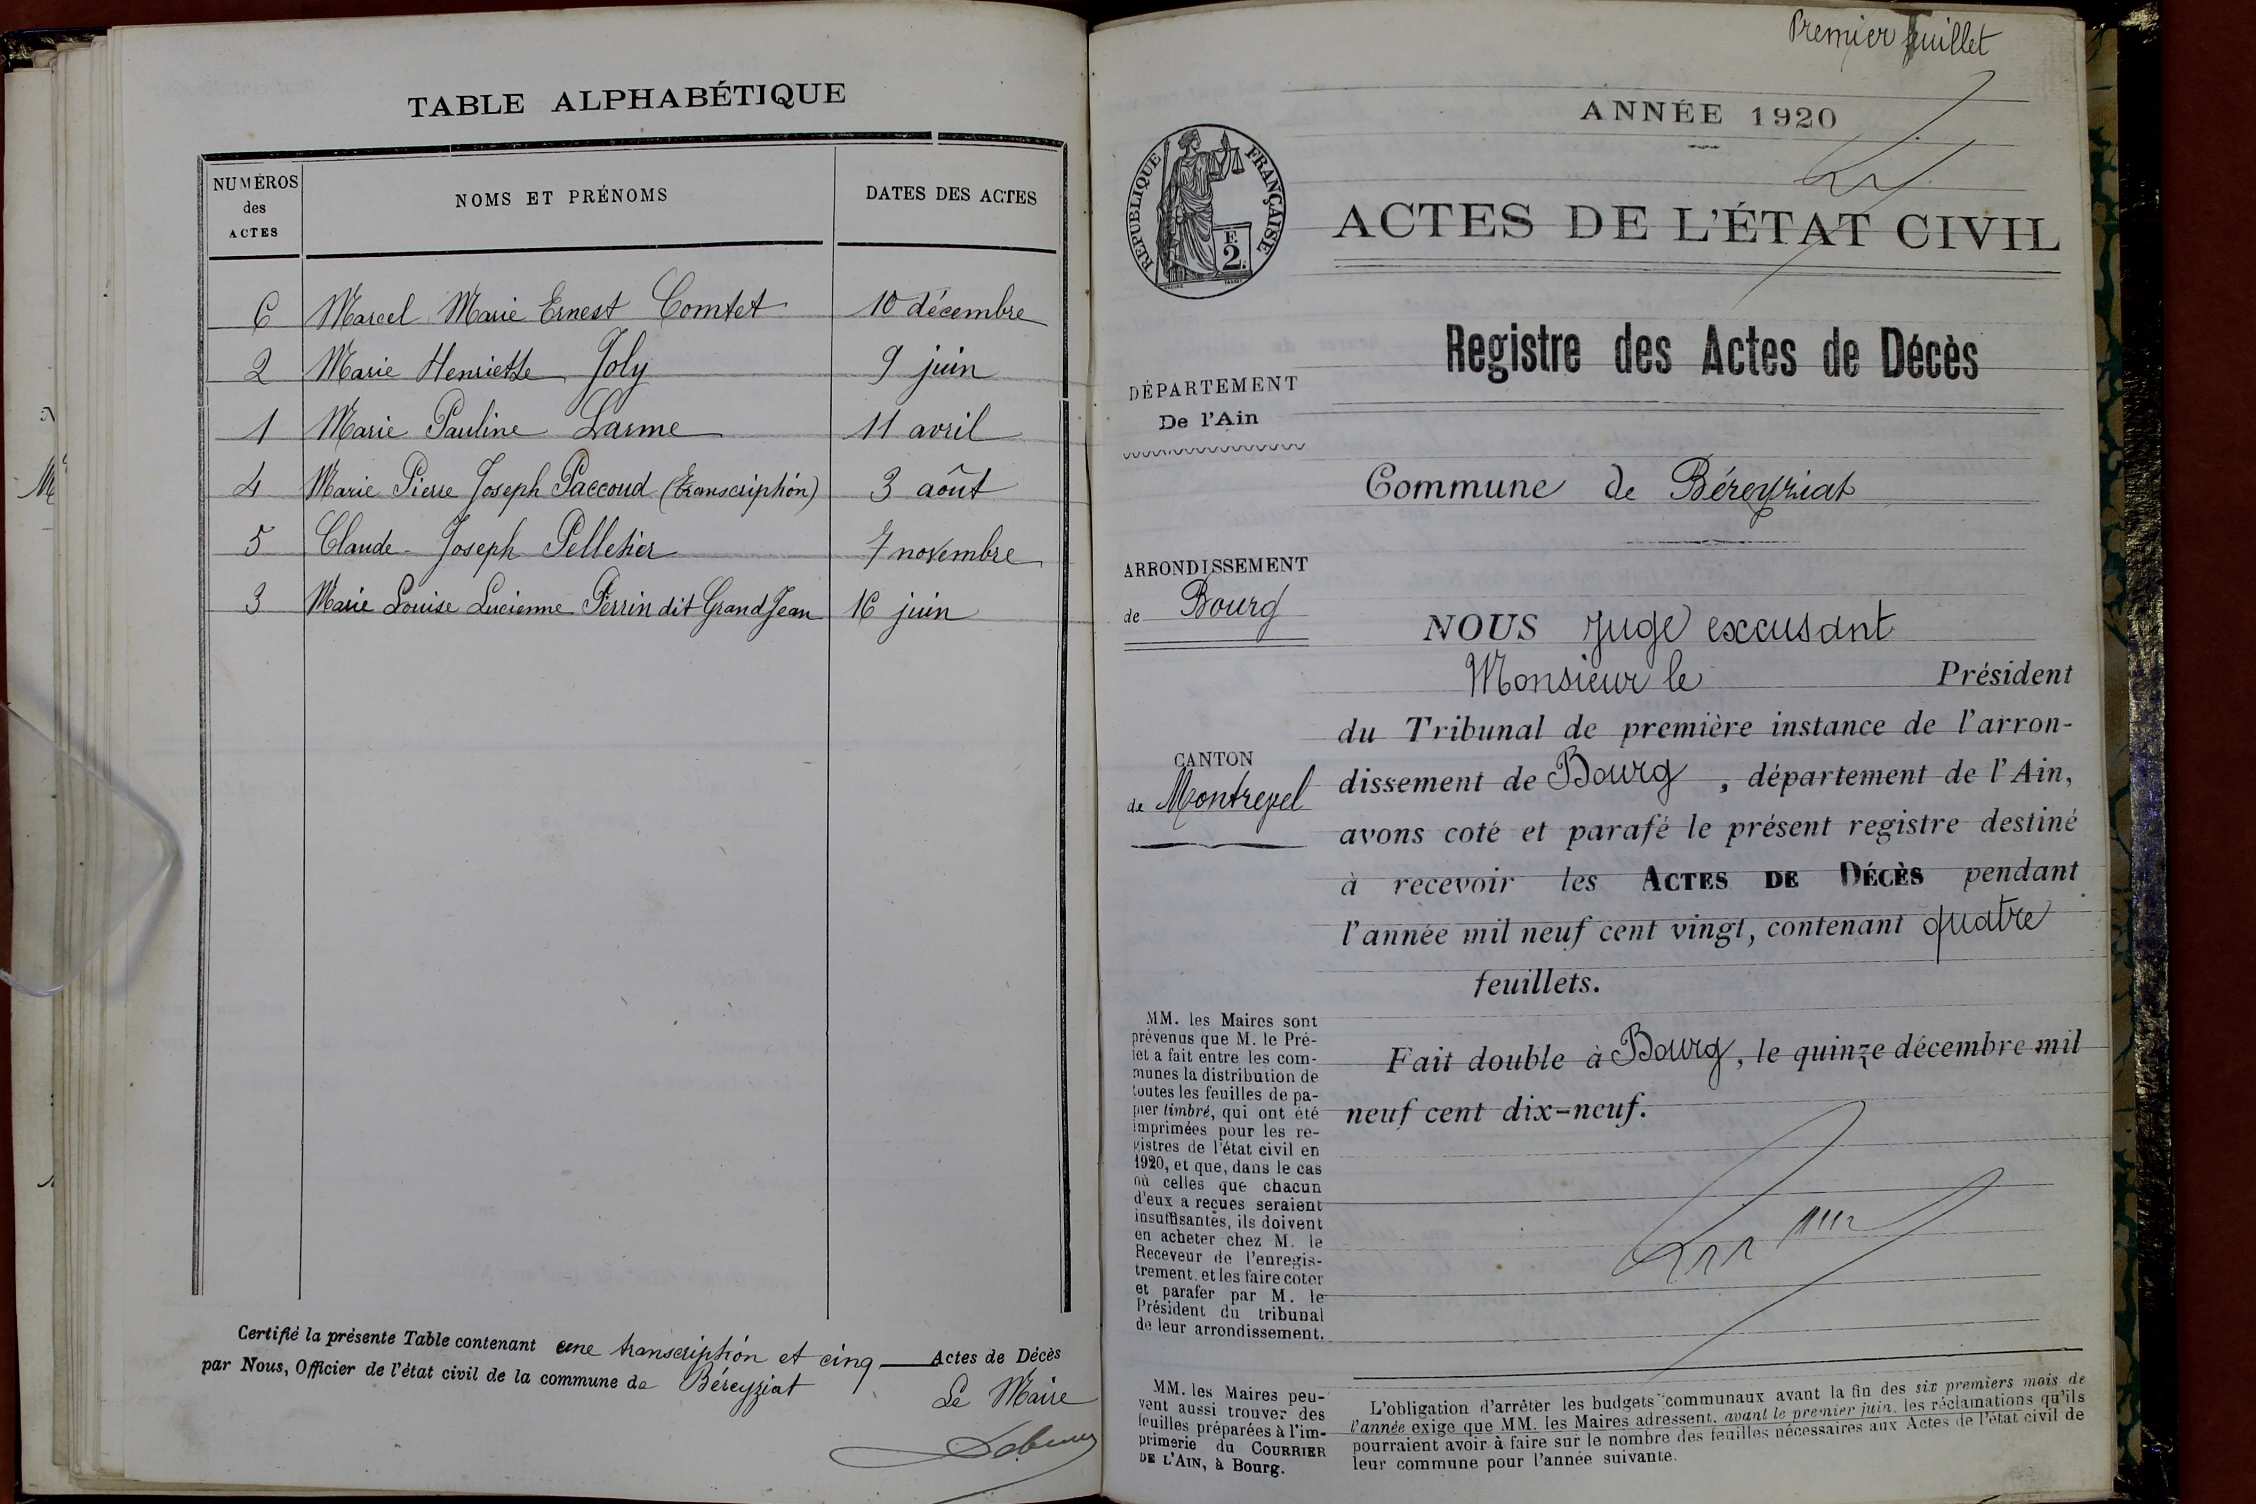 TABLE ALPHABÉTIQUE
NUMÉROS des ACTES NOMS ET PRÉNOMS DATES DES ACTES
6 Marcel Marie Ernest Comtet 10 décembre
2 Marie Henriette Joly 9 juin
1 Marie Pauline Larme 11 avril
4 Marie Pierre Joseph Paccoud (transcription) 3 août
5 Claude Joseph Pelletier 7 novembre
3 Marie Louise Lucienne Perrin dit GrandJean 16 juin
Certifié la présente Table contenant une transcription et cinq Actes de Décès
par Nous, Officier de l'état civil de la commune de Béreyziat
Le Maire
Premier feuillet
ANNÉE 1920
RÉPUBLIQUE FRANÇAISE
F.
2.
ACTES DE L'ÉTAT CIVIL
Registre des Actes de Décès
DÉPARTEMENT
De l'Ain
Commune de Béreyziat
ARRONDISSEMENT
de Bourg
CANTON
de Montrevel
NOUS Juge excusant
Monsieur le Président
du Tribunal de première instance de l'arron-
dissement de Bourg, département de l'Ain,
avons coté et parafé le présent registre destiné
à recevoir les ACTES DE DÉCÈS pendant
l'année mil neuf cent vingt, contenant quatre
feuillets.
Fait double à Bourg, le quinze décembre mil
neuf cent dix-neuf.
MM. les Maires sont
prévenus que M. le Pré-
fet a fait entre les com-
munes la distribution de
toutes les feuilles de pa-
pier timbré, qui ont été
imprimées pour les re-
gistres de l'état civil en
1920, et que, dans le cas
où celles que chacun
d'eux a reçues seraient
insuffisantes, ils doivent
en acheter chez M. le
Receveur de l'enregis-
trement, et les faire coter
et parafer par M. le
Président du tribunal
de leur arrondissement.
MM. les Maires peu-
vent aussi trouver des
feuilles préparées à l'im-
primerie du COURRIER
DE L'AIN, à Bourg.
L'obligation d'arrêter les budgets communaux avant la fin des six premiers mois de
l'année exige que MM. les Maires adressent, avant le premier juin, les réclamations qu'ils
pourraient avoir à faire sur le nombre des feuilles nécessaires aux Actes de l'état civil de
leur commune pour l'année suivante.